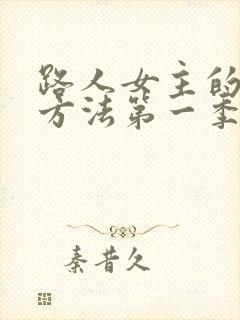 路人女主的
方法第一季
秦昔久